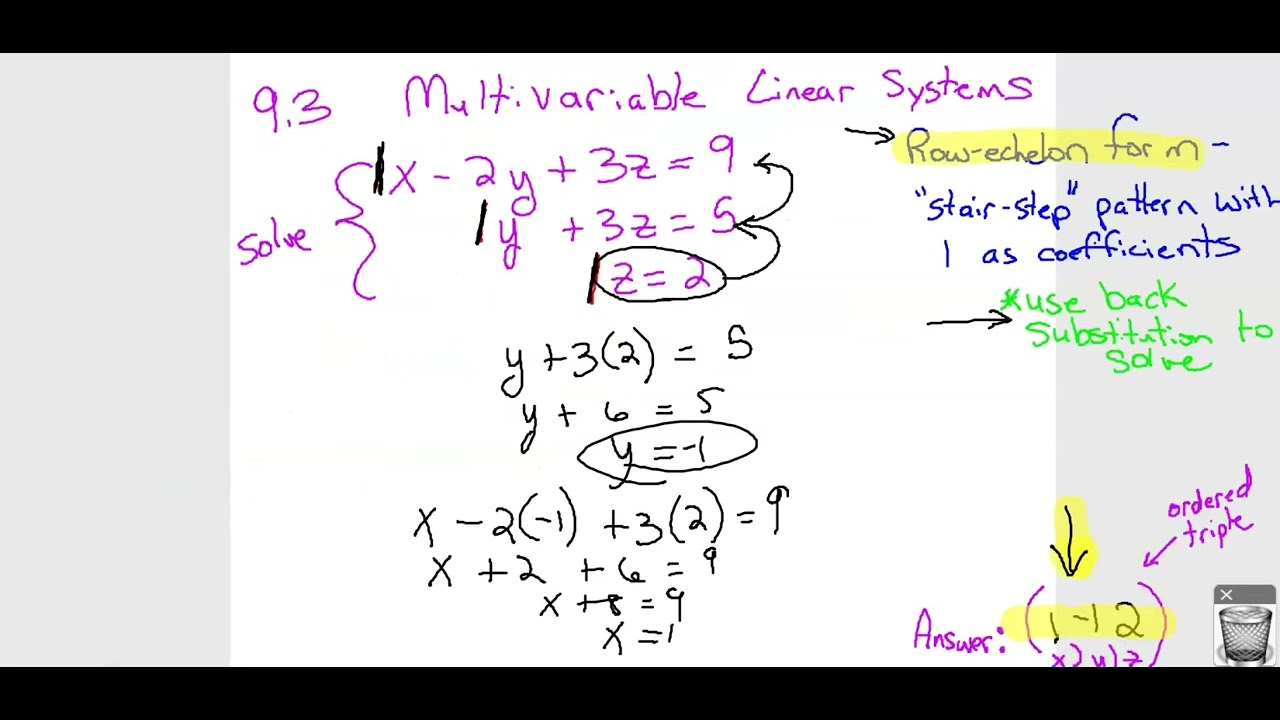 9.3 Multivariable Linear Systems
solve
1x - 2y + 3z = 9
1y + 3z = 5
1z = 2
→ Row-echelon form -
"stair-step" pattern with
1 as coefficients
→ *use back
substitution to
solve
y + 3(2) = 5
y + 6 = 5
y = -1
x - 2(-1) + 3(2) = 9
x + 2 + 6 = 9
x + 8 = 9
x = 1
ordered
triple
Answer: (1 -1 2)
x, y, z